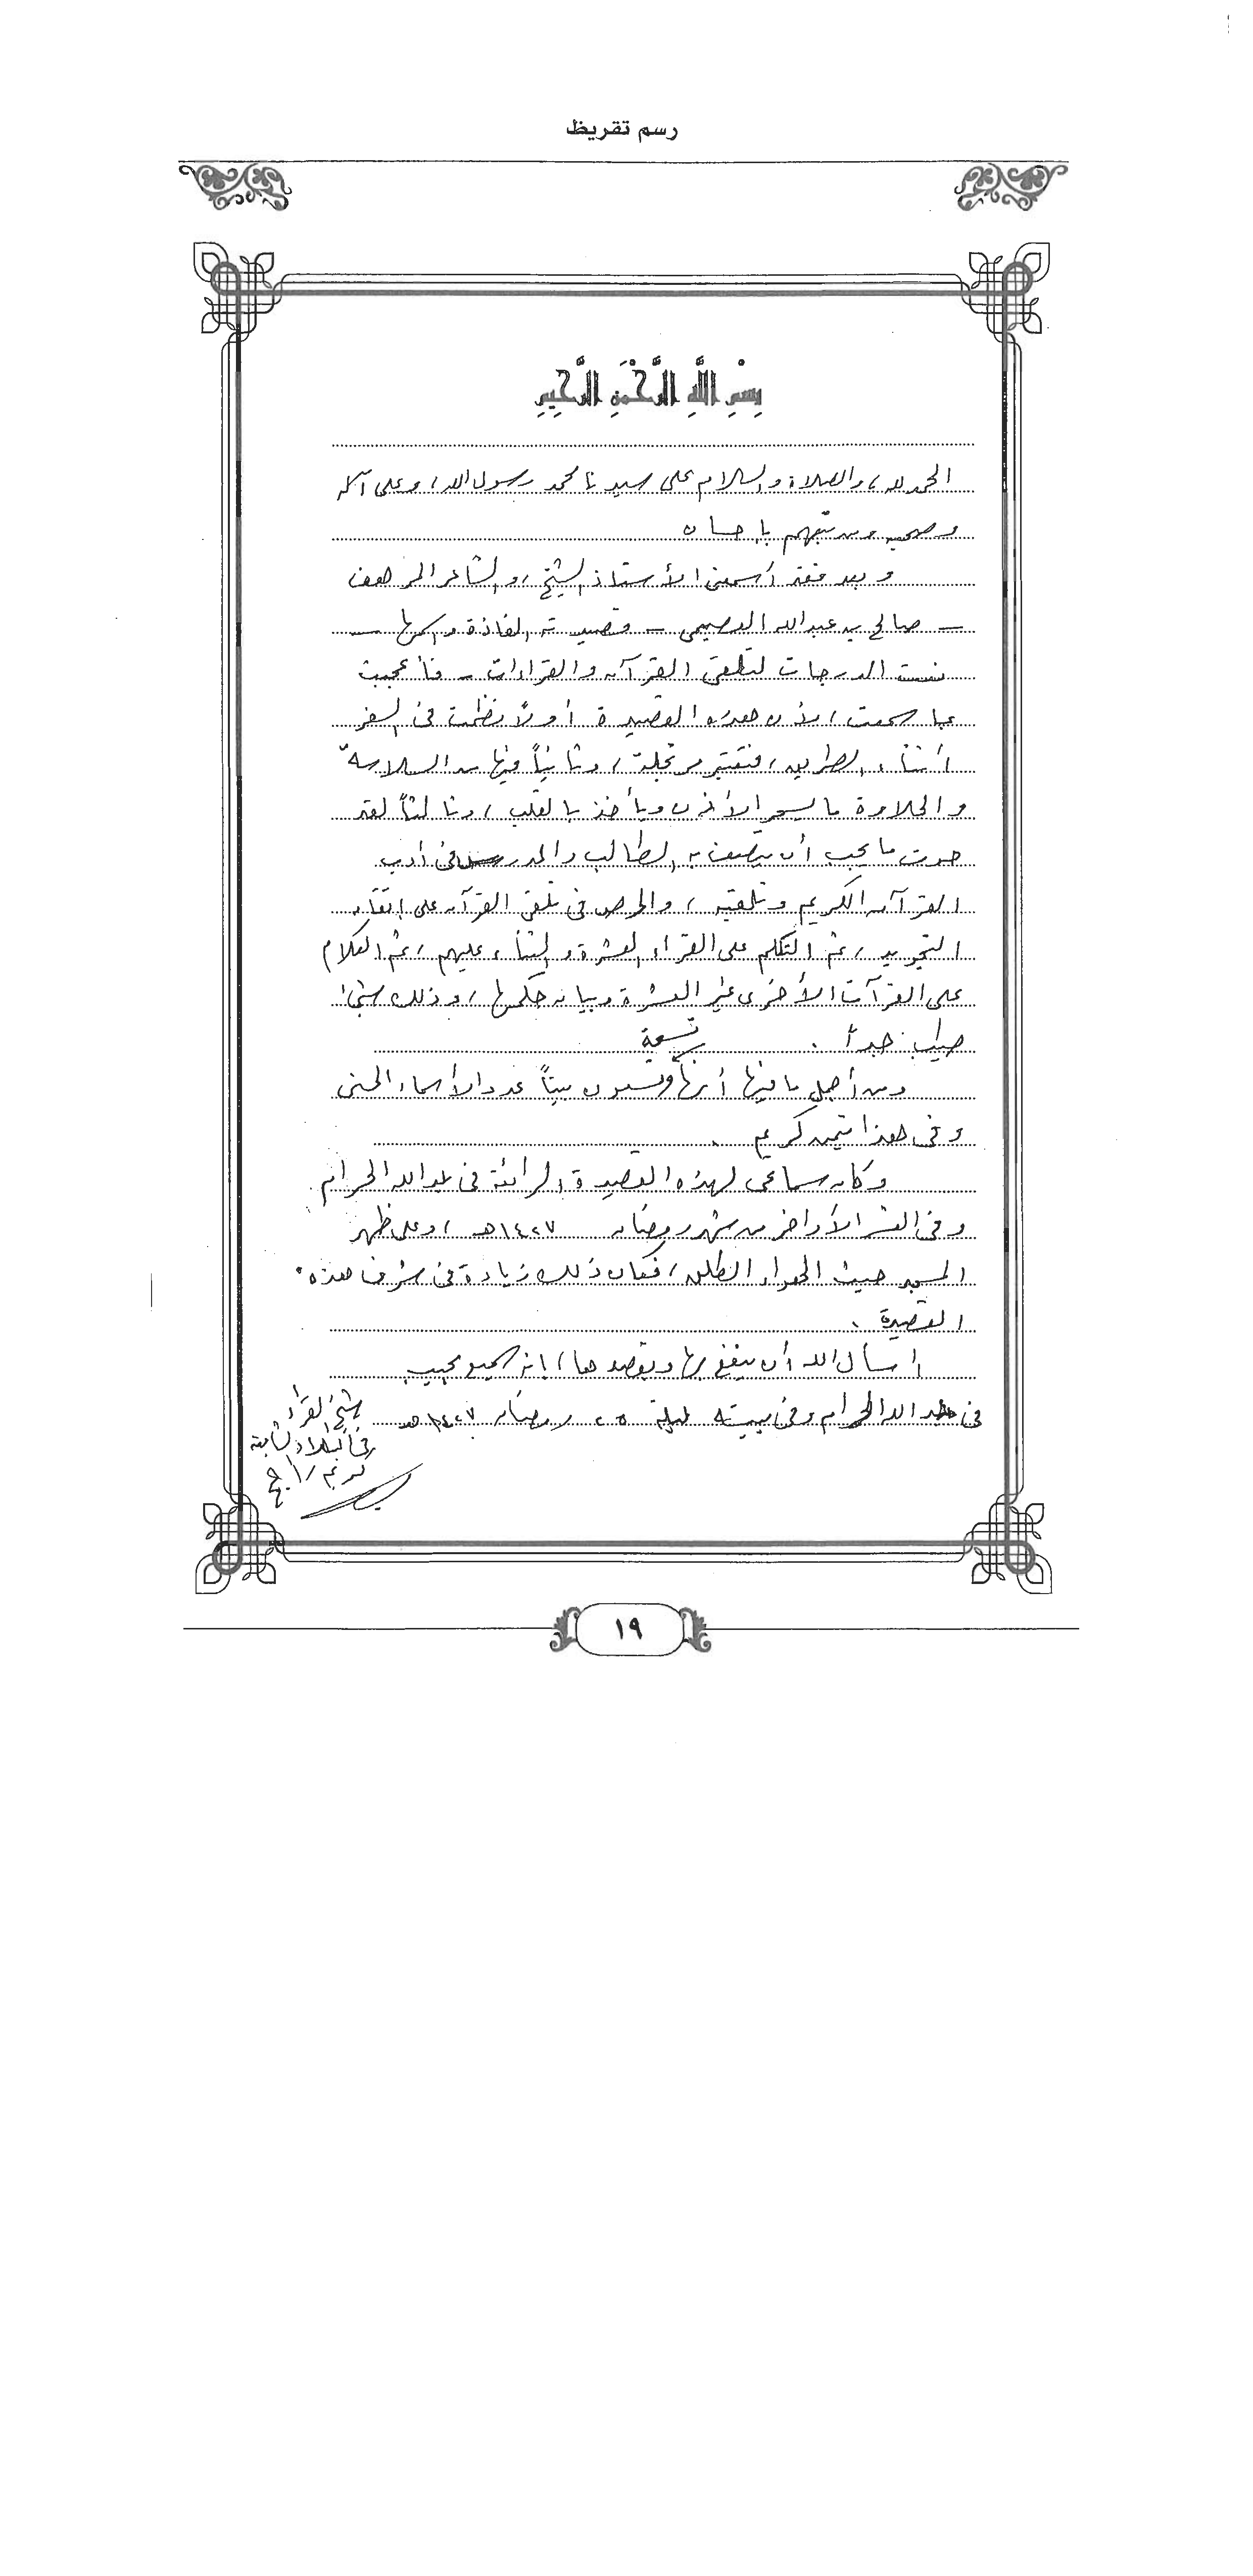 رسم تقريظ
بِسْمِ اللَّهِ الرَّحْمَنِ الرَّحِيمِ
الحمد لله، والصلاة والسلام على سيدنا محمد رسول الله، وعلى آله
وصحبه ومن تبعهم بإحسان
وبعد فقد أسمعني الأستاذ الشيخ، والشاعر المرهف
– صالح بن عبدالله العصيمي – قصيدته الفاذة واسمها –
الدرجات لتلقي القرآن والقراءات – فأعجبت
بما سمعت، لأن هذه القصيدة أولاً نظمت في السفر
أثناء الطريق، فتعتبر مرتجلة، وثانياً فيها من السلاسة
والحلاوة ما يسحر الأذن ويأخذ بالقلب، وثالثاً لقد
حوت ما يجب أن يتصف به الطالب والمدرس في أدب
القرآن الكريم وتلقيه، والحرص في تلقي القرآن على إتقان
التجويد، ثم التكلم على القراء العشرة والثناء عليهم، ثم الكلام
على القرآت الأخرى غير العشرة وبيان حكمها، وذلك شيء
طيب جداً .
ومن أجمل ما فيها أنها تسعة وتسعون بيتاً عدد الأسماء الحسنى
وفي هذا تيمن كريم .
وكان سماعي لهذه القصيدة الرائعة في بلد الله الحرام
وفي العشر الأواخر من شهر رمضان ١٤٢٧هـ، وعلى ظهر
المسجد حيث الهواء الطلق، فكان ذلك زيادة في شرف هذه
القصيدة .
اسأل الله أن ينفع بها وبقصدها، إنه سميع مجيب
في بلد الله الحرام وفي بيته ليلة ٢٥ رمضان ١٤٢٧هـ
شيخ القراء
في البلاد الشامية
كريم راجح
١٩